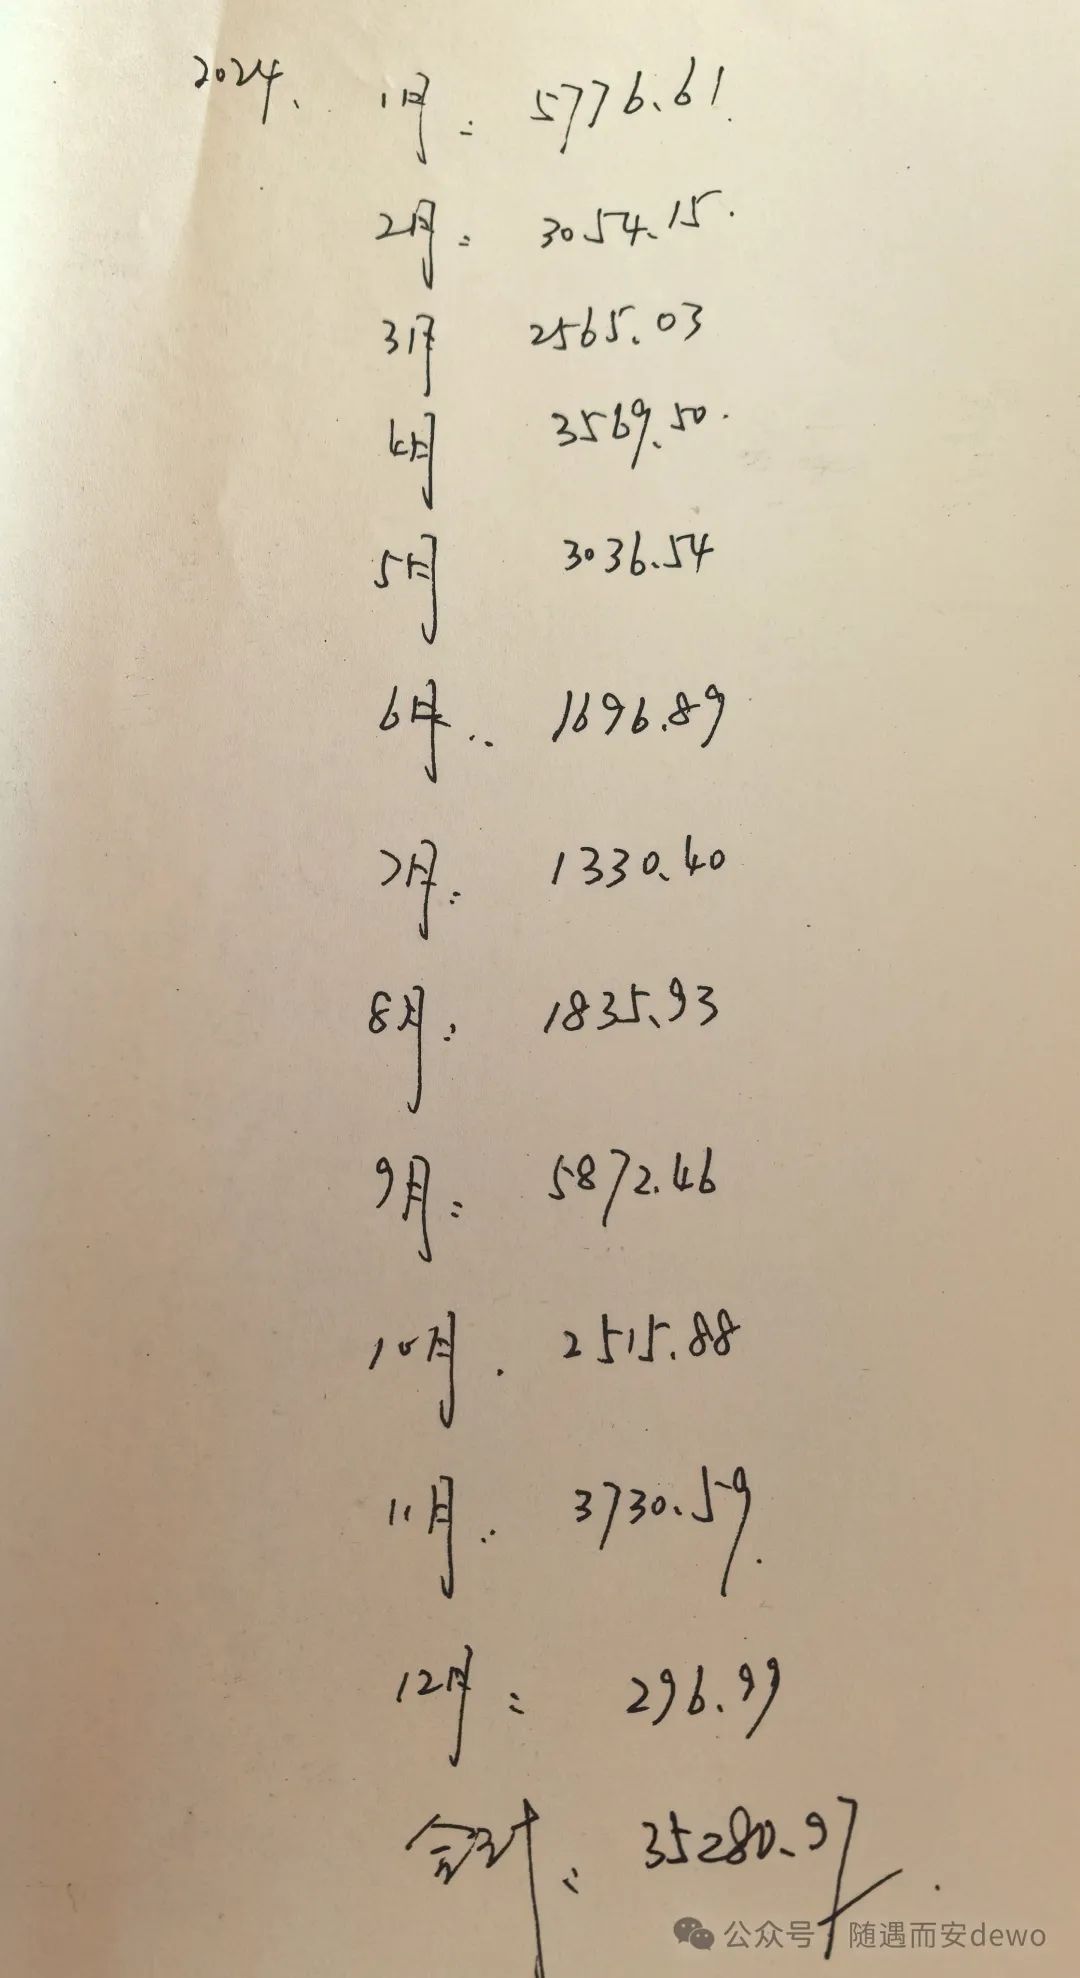 2024、 1月: 5776.61.
2月: 3054.15.
3月 2565.03
4月 3569.50.
5月 3036.54
6月: 1696.89
7月: 1330.40
8月: 1835.93
9月: 5872.46
10月. 2515.88
11月: 3730.59.
12月: 296.99
合计: 35280.97.
公众号 随遇而安dewo